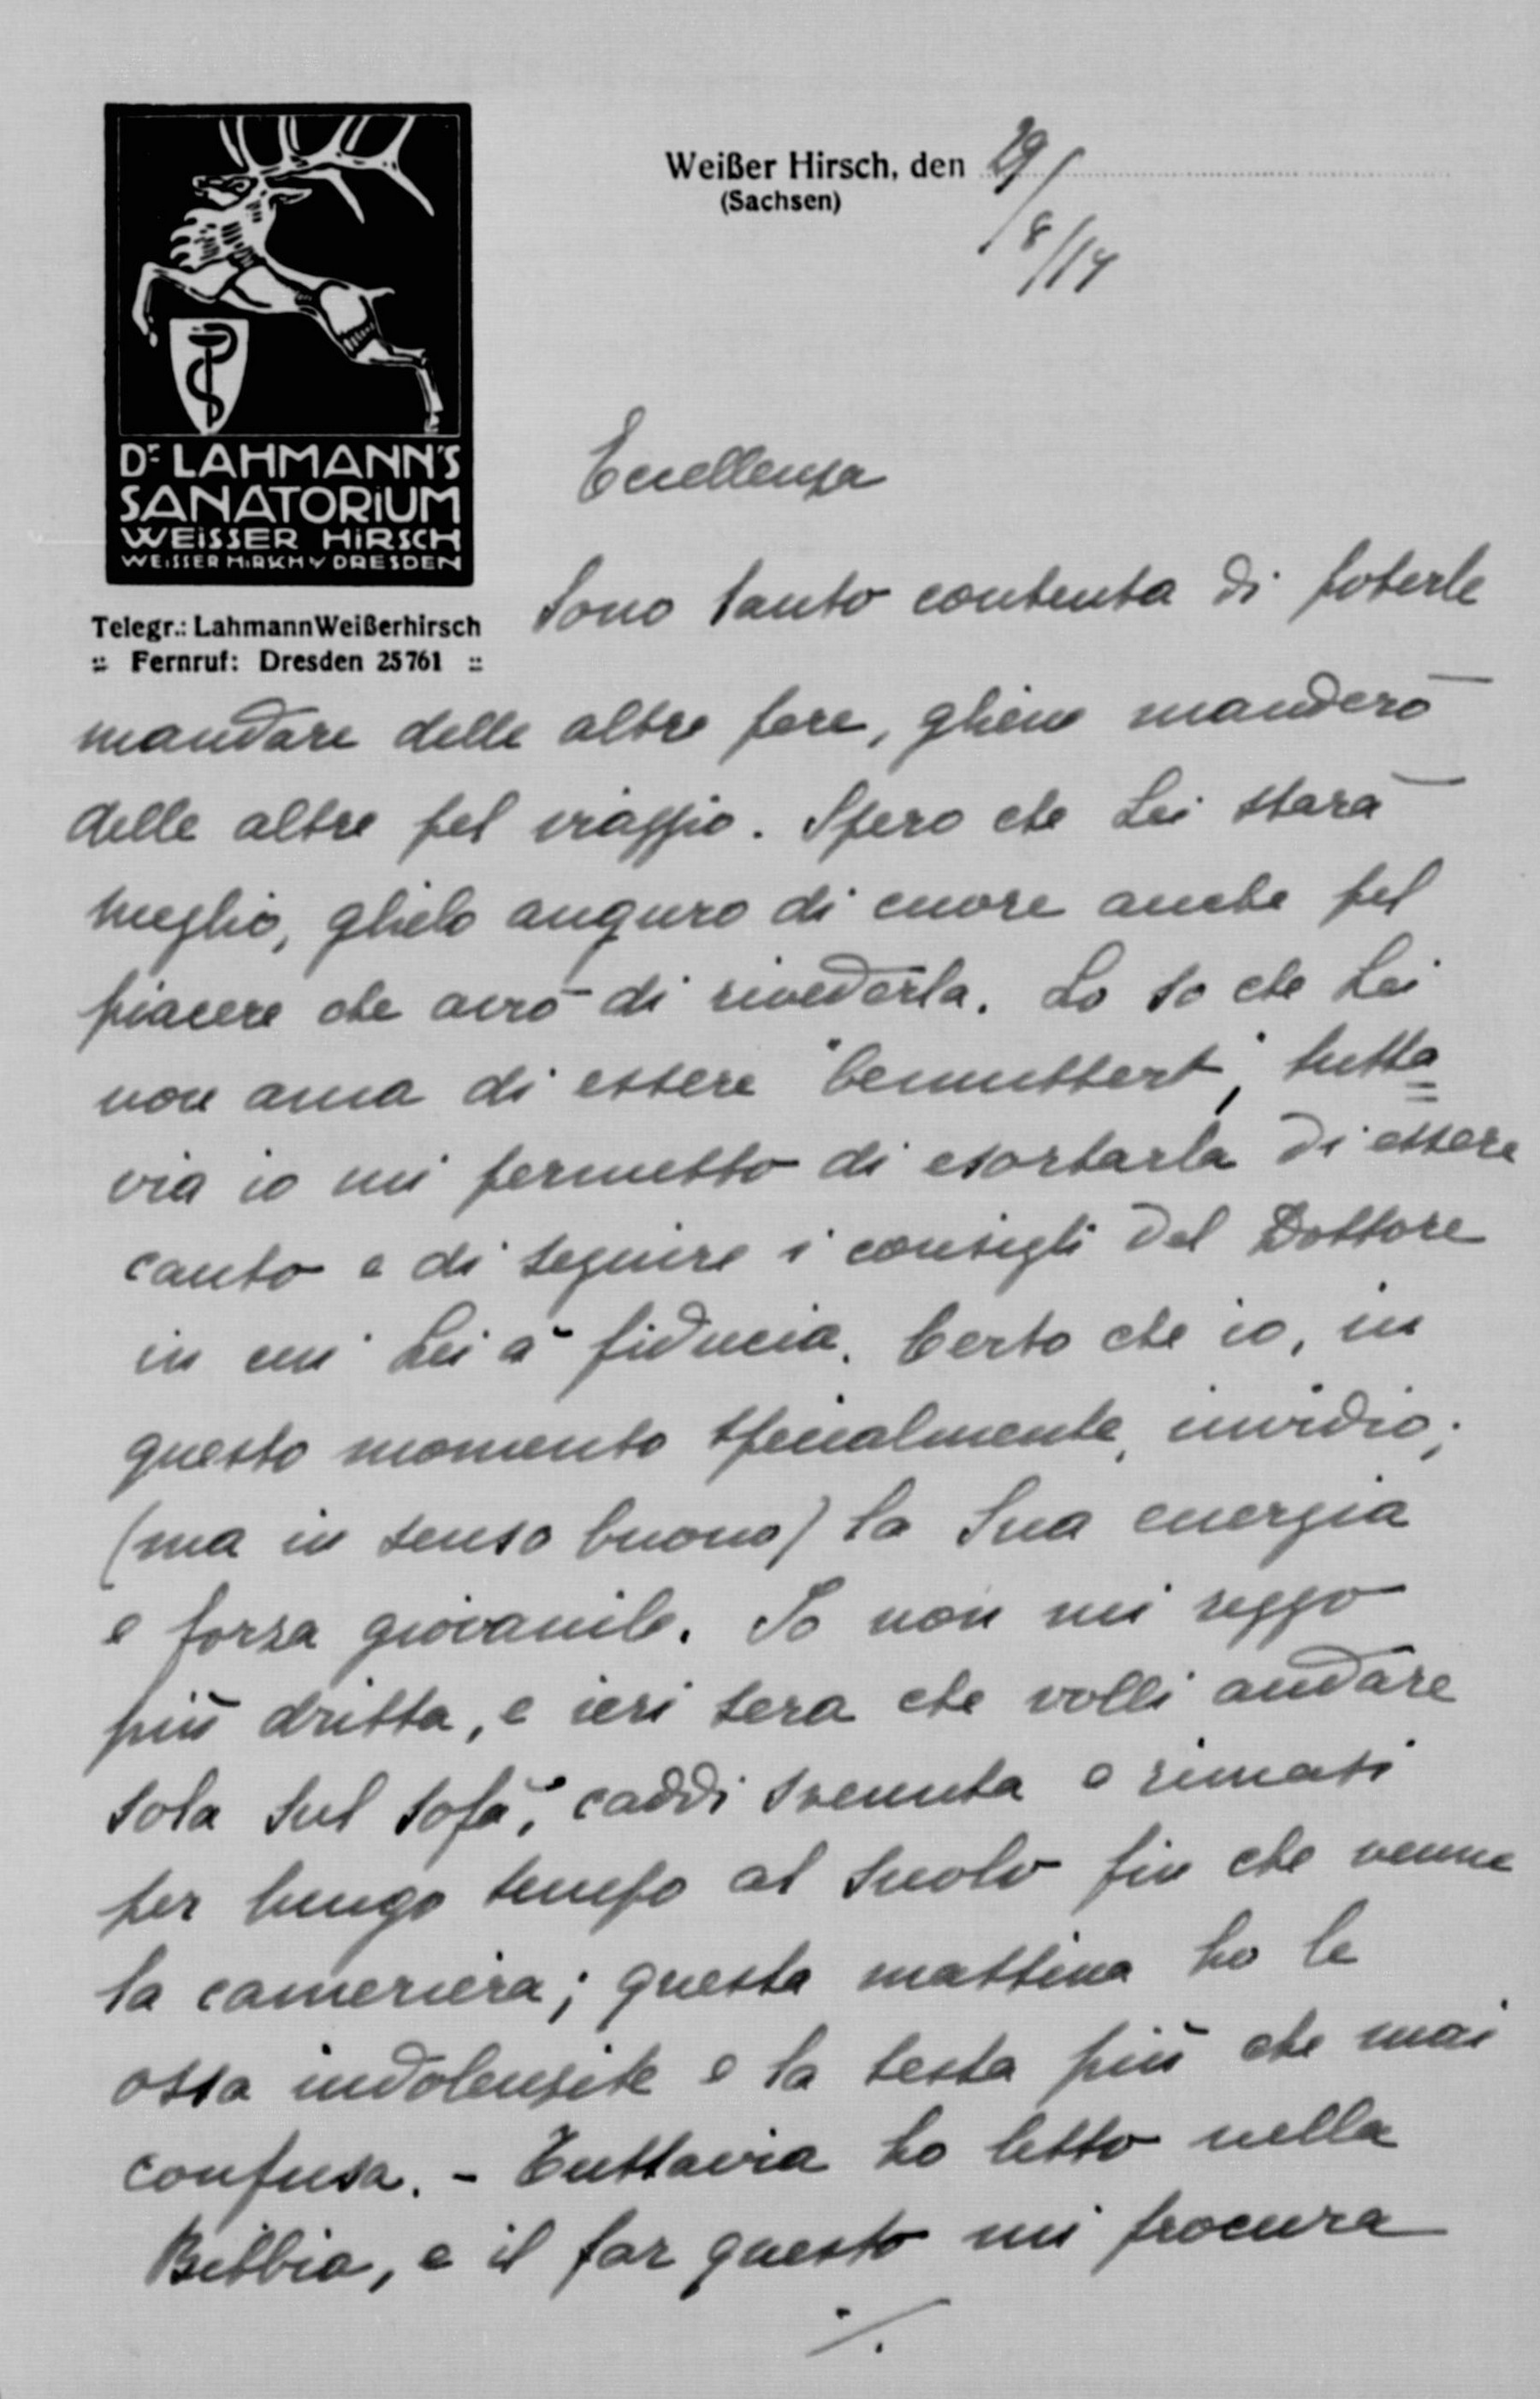 Weißer Hirsch, den 29/8/14
(Sachsen)
Dr LAHMANN'S
SANATORIUM
WEISSER HIRSCH
WEISSER HIRSCH v DRESDEN
Telegr.: Lahmann Weißerhirsch
:: Fernruf: Dresden 25761 ::
Eccellenza
Sono tanto contenta di poterle
mandare delle altre pere, gliene manderò
delle altre pel viaggio. Spero che Lei starà
meglio, glielo auguro di cuore anche pel
piacere che avrò di rivederla. Lo so che Lei
non ama di essere "bemuttert", tutta=
via io mi permetto di esortarla di essere
cauto e di seguire i consigli del Dottore
in cui Lei à fiducia. Certo che io, in
questo momento specialmente, invidio,
(ma in senso buono) la Sua energia
e forza giovanile. Io non mi reggo
più dritta, e ieri sera che volli andare
sola sul sofà, caddi svenuta e rimasi
per lungo tempo al suolo fin che venne
la cameriera; questa mattina ho le
ossa indolenzite e la testa più che mai
confusa. - Tuttavia ho letto nella
Bibbia, e il far questo mi procura
./.